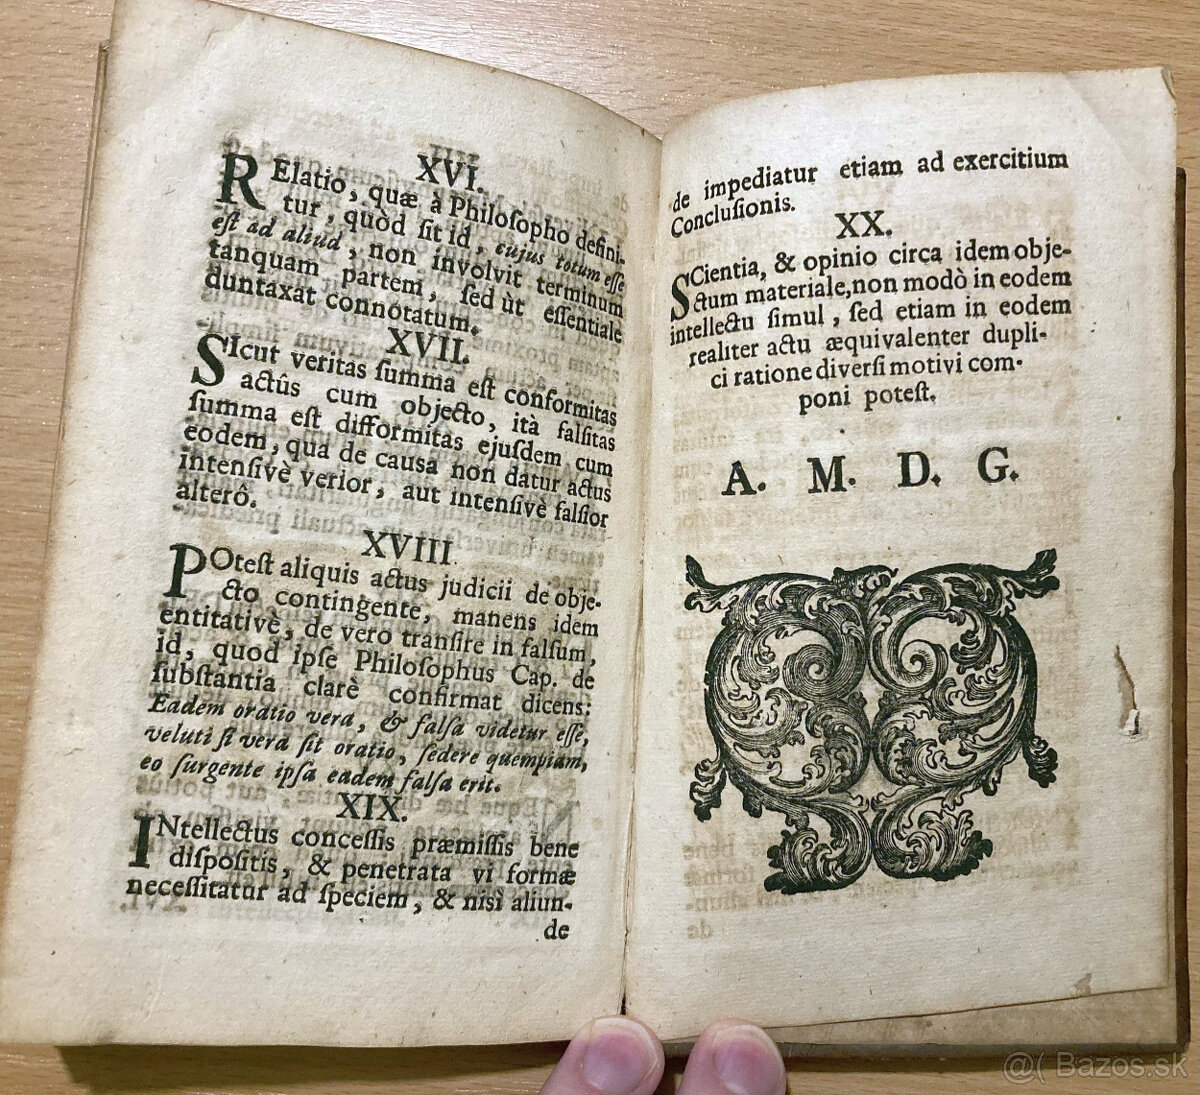 XVI.
RElatio, quæ à Philoſopho defini-
tur, quòd ſit id, cujus totum eſſe
eſt ad aliud, non involvit terminum
tanquam partem, ſed ùt eſſentiale
duntaxat connotatum.
XVII.
SIcut veritas ſumma eſt conformitas
actûs cum objecto, ità falſitas
ſumma eſt difformitas ejuſdem cum
eodem, qua de cauſa non datur actus
intenſivè verior, aut intenſivè falſior
alterô.
XVIII.
POteſt aliquis actus judicii de obje-
cto contingente, manens idem
entitativè, de vero tranſire in falſum,
id, quod ipſe Philoſophus Cap. de
ſubſtantia clarè confirmat dicens:
Eadem oratio vera, & falſa videtur eſſe,
veluti ſi vera ſit oratio, ſedere quempiam,
eo ſurgente ipſa eadem falſa erit.
XIX.
INtellectus conceſſis præmiſſis bene
diſpoſitis, & penetrata vi formæ
neceſſitatur ad ſpeciem, & niſi aliun-
de
de impediatur etiam ad exercitium
Concluſionis.
XX.
SCientia, & opinio circa idem obje-
ctum materiale, non modò in eodem
intellectu ſimul, ſed etiam in eodem
realiter actu æquivalenter dupli-
ci ratione diverſi motivi com-
poni poteſt.
A. M. D. G.
@( Bazos.sk